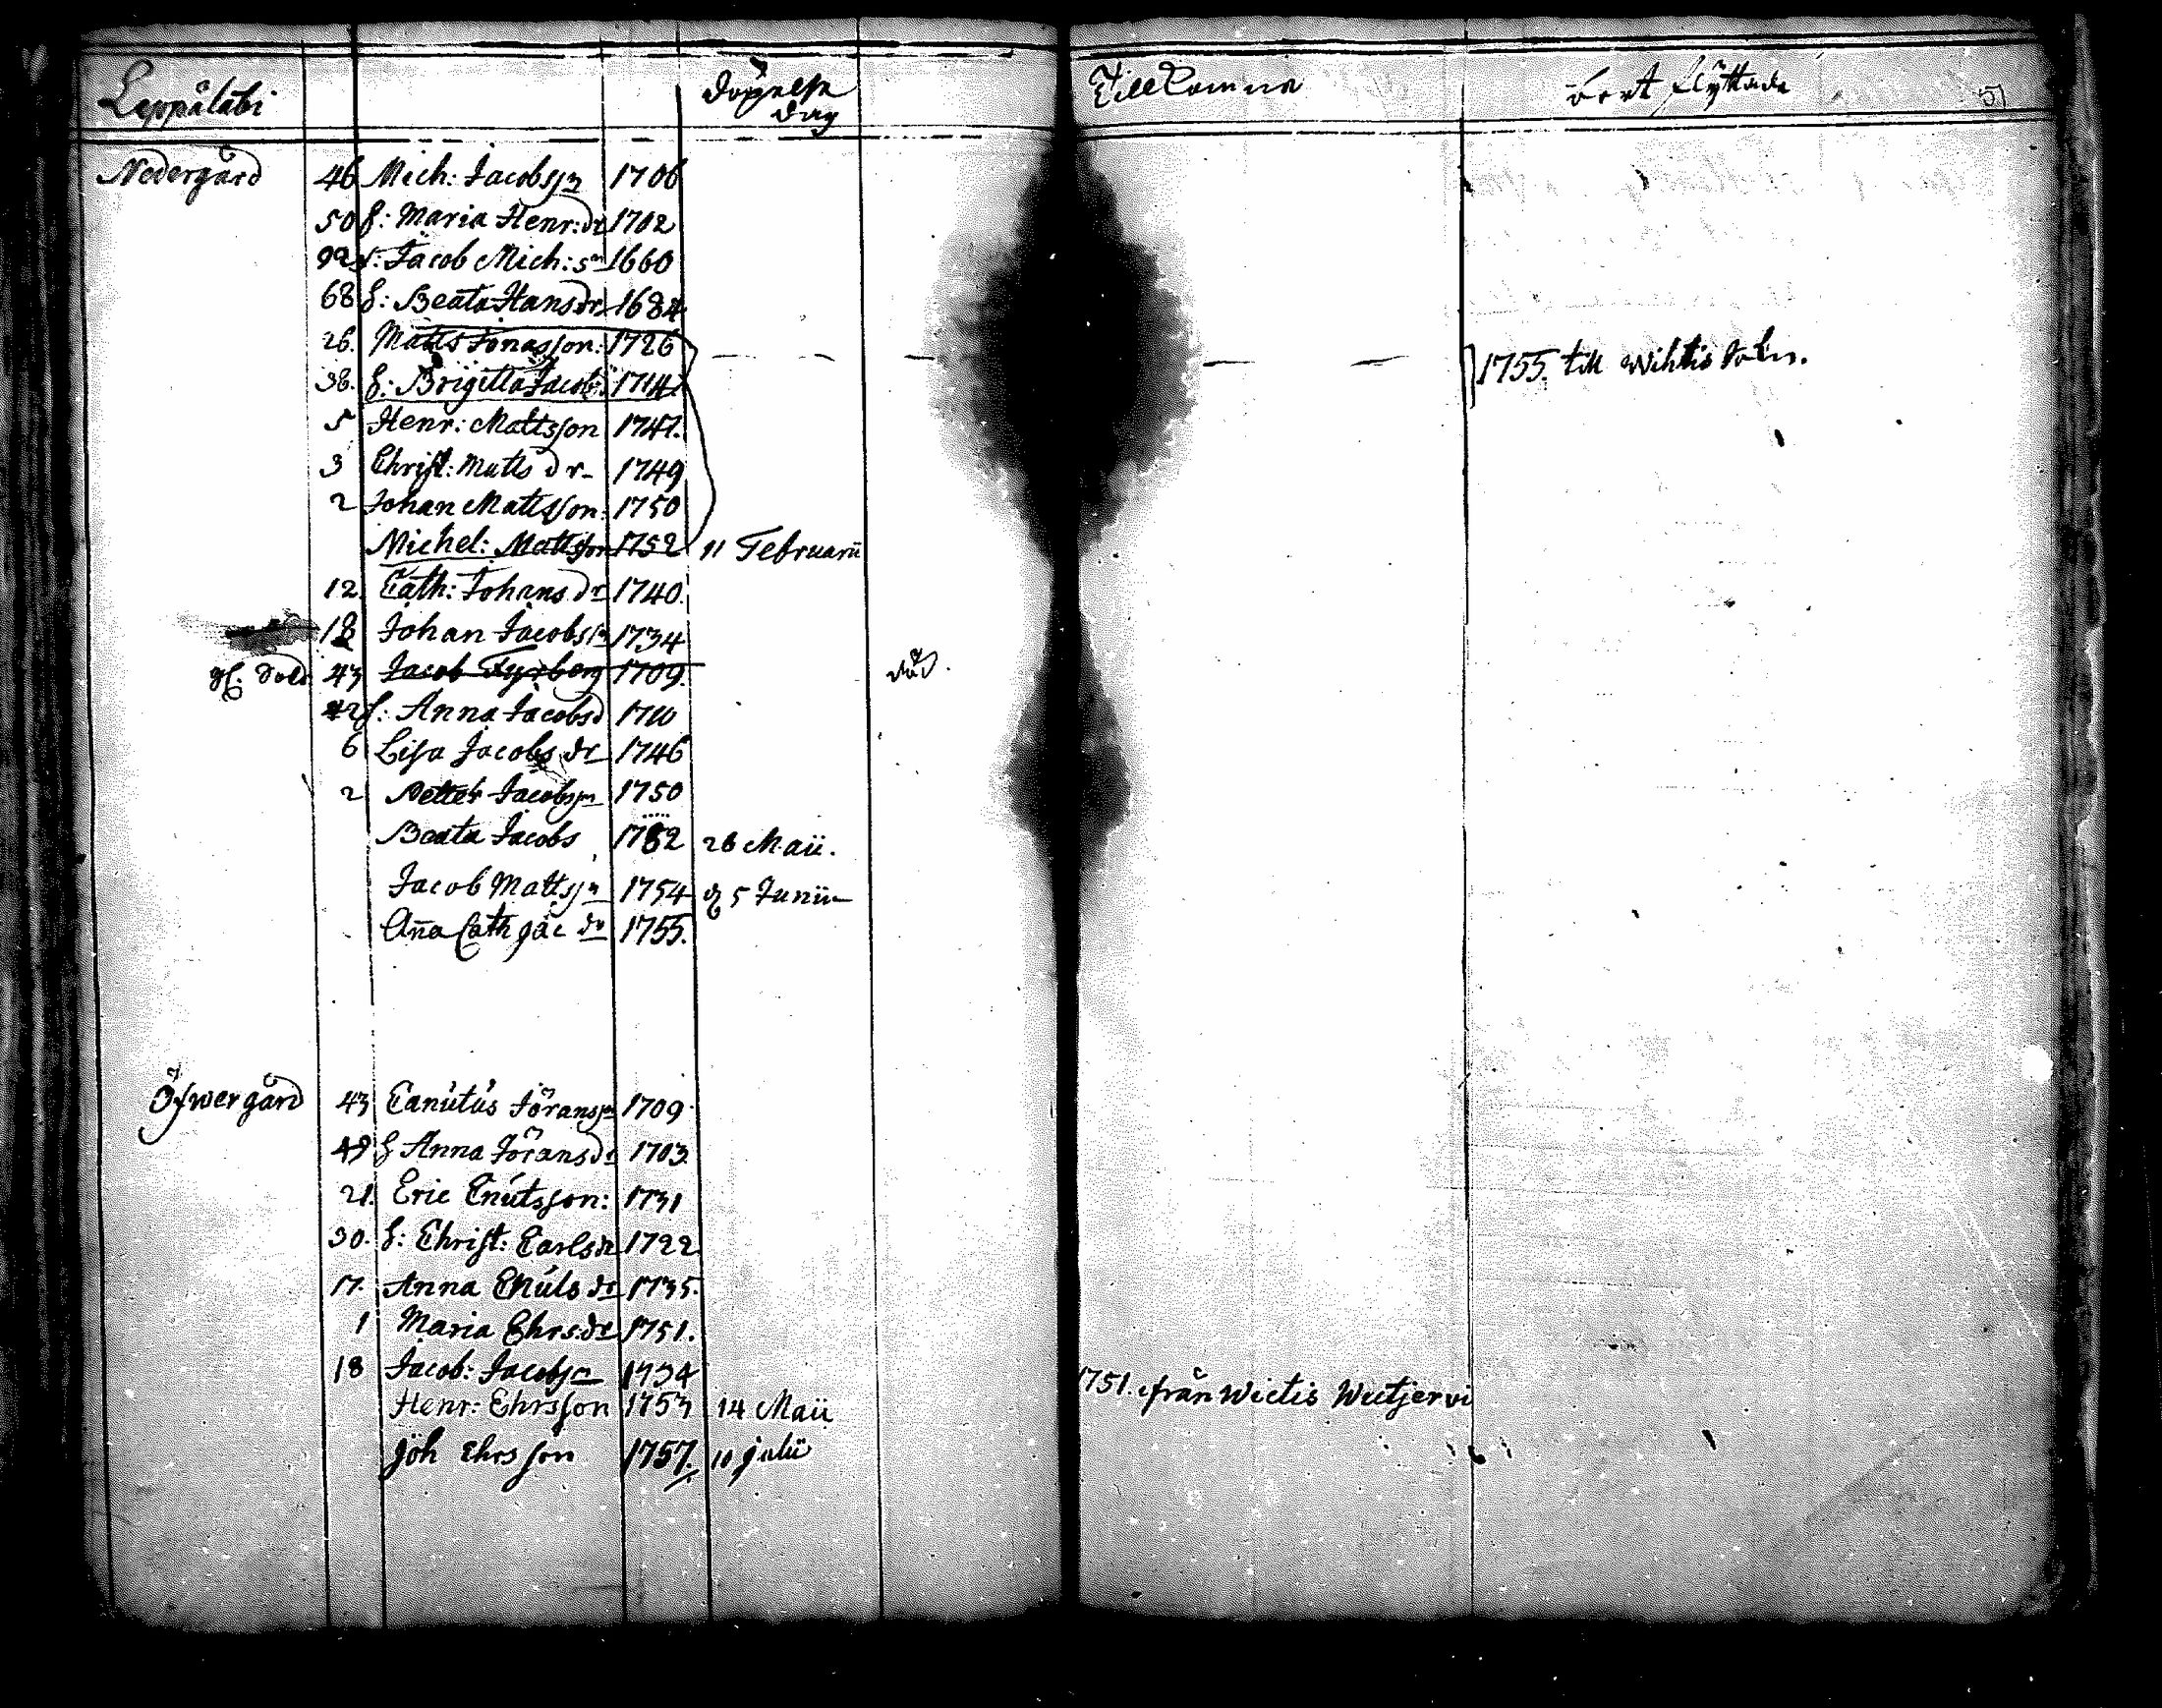 Leppälabi döpelse dag Tillkomne bort flyttade
Nedergård 46 Mich: Jacobsn 1706
50 h: Maria Henr: dr 1702
92 Jacob Mich: sn 1660
68 h: Beata Hansdr 1684
26. Matts Jonasson: 1726 1755. till Wihtis Sokn.
38. h: Brigitta Jacobs 1714
5 Henr: Mattsson 1747.
3 Christ: Matts dr 1749
2 Johan Mattsson: 1750
Michel: Mattsson 1752 11 Februarii
12. Cath: Johans dr 1740.
18 Johan Jacobssn 1734
Sold 43 Jacob Fyrberg 1709. död.
42 h: Anna Jacobsd 1710
6 Lisa Jacobs dr 1746
2 Petter Jacobsn 1750
Beata Jacobs 1752 28 Maii.
Jacob Mattsn 1754 5 Junii
Aña Cath Jac dr 1755.
Öfwergård 43 Canutus Göranssn 1709.
49 h Anna Göransdr 1703.
21. Eric Cnutsson: 1731
30. h: Christ: Carlsdr 1722
17. Anna Cnuts dr 1735.
1 Maria Ehrs: dr 1751.
18 Jacob: Jacobsn 1734 1751. ifrån Wictis Wutjervi
Henr: Ehrsson 1753 14 Maii
Joh Ehrsson 1757. 10 Julii